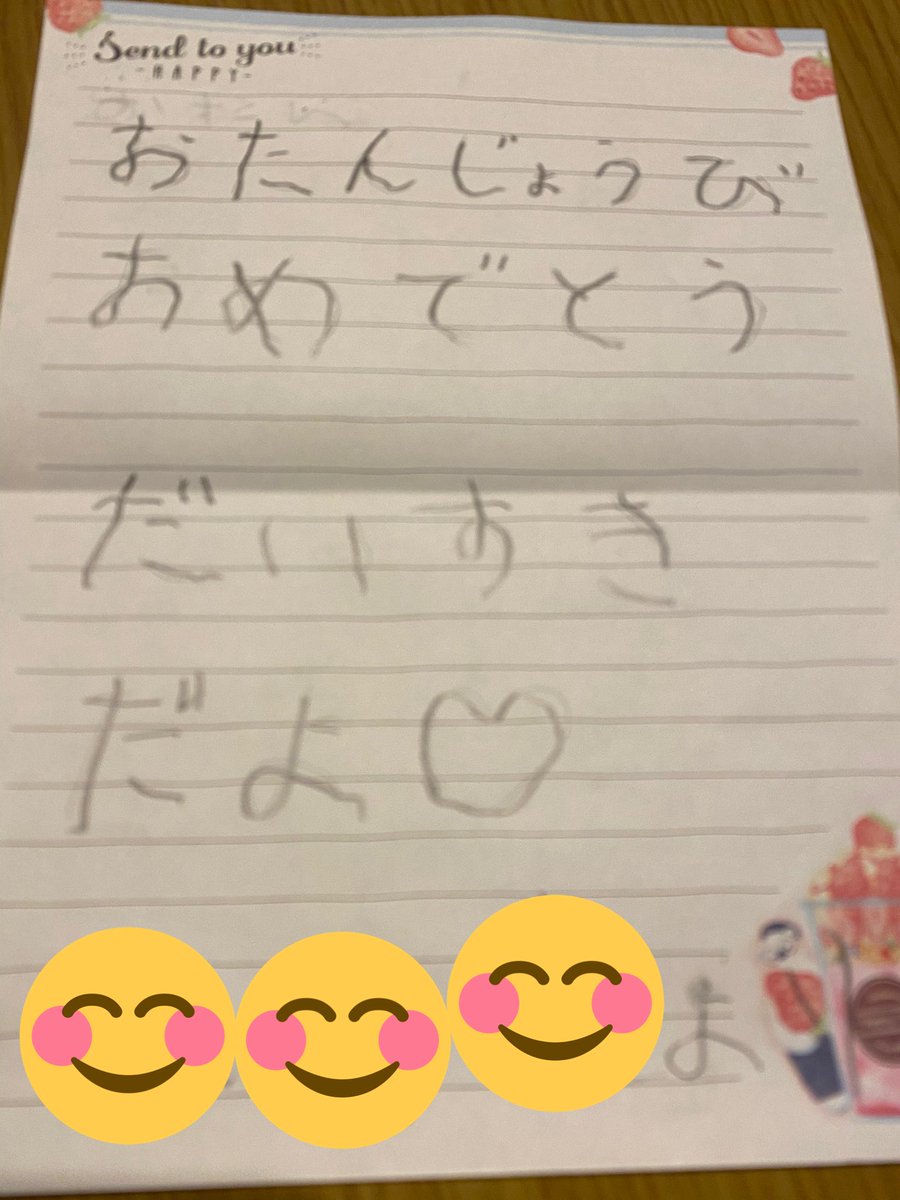 Send to you
-HAPPY-
おたんじょうび
おめでとう
だいすき
だよ♡
ま